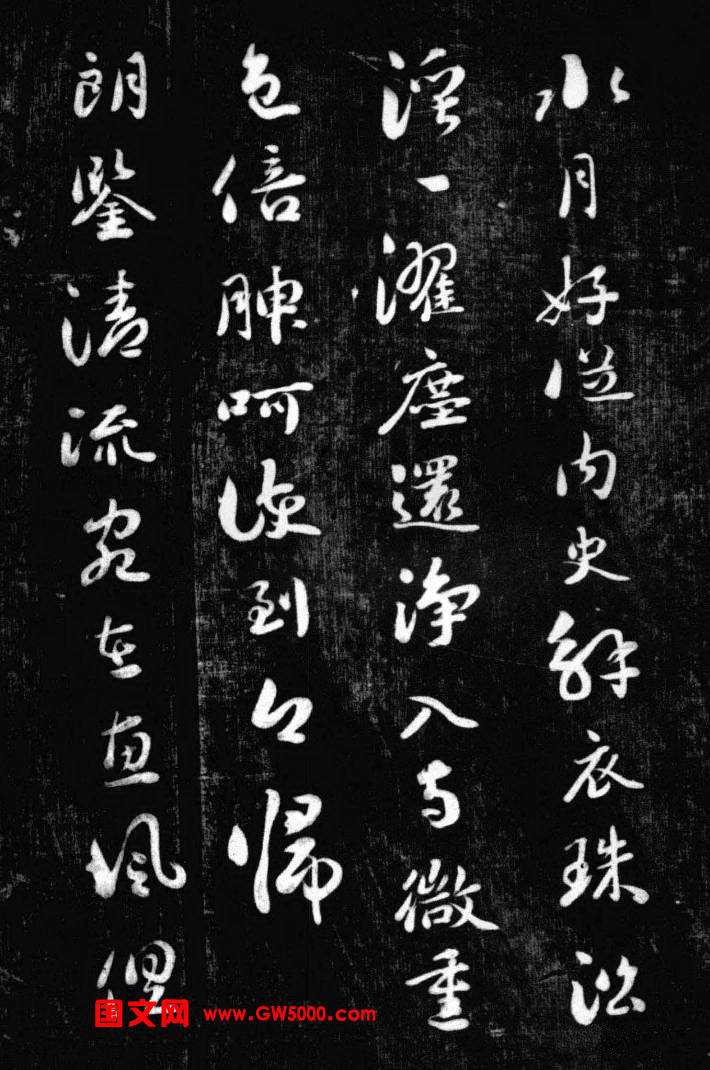 水月好從内史解衣珠
一濯塵還淨入微重
色倍腴呵到歸
朗鑒清流宛在惠風
国文网 www.GW5000.com